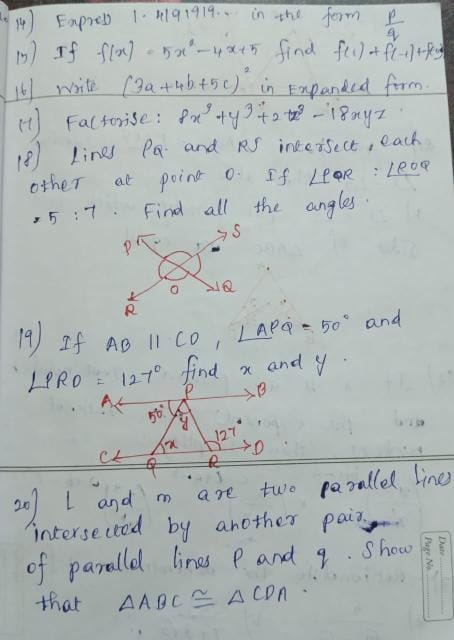 14) Express 1.4191919... in the form p/q
15) If f(x) = 5x² - 4x + 5 find f(1) + f(-1) + f(
16) Write (3a + 4b + 5c)² in Expanded form.
17) Factorise: 8x³ + y³ + 27z³ - 18xyz
18) Lines PQ and RS intersect each
other at point O. If ∠POR : ∠ROQ
= 5 : 7. Find all the angles.
P S
O
R Q
19) If AB || CD, ∠APQ = 50° and
∠PRD = 127° find x and y.
A P B
50° y
x 127
C Q R D
20) L and m are two parallel lines
intersected by another pair
of parallel lines P and q. Show
that △ABC ≅ △CDA.
Date
Page No.